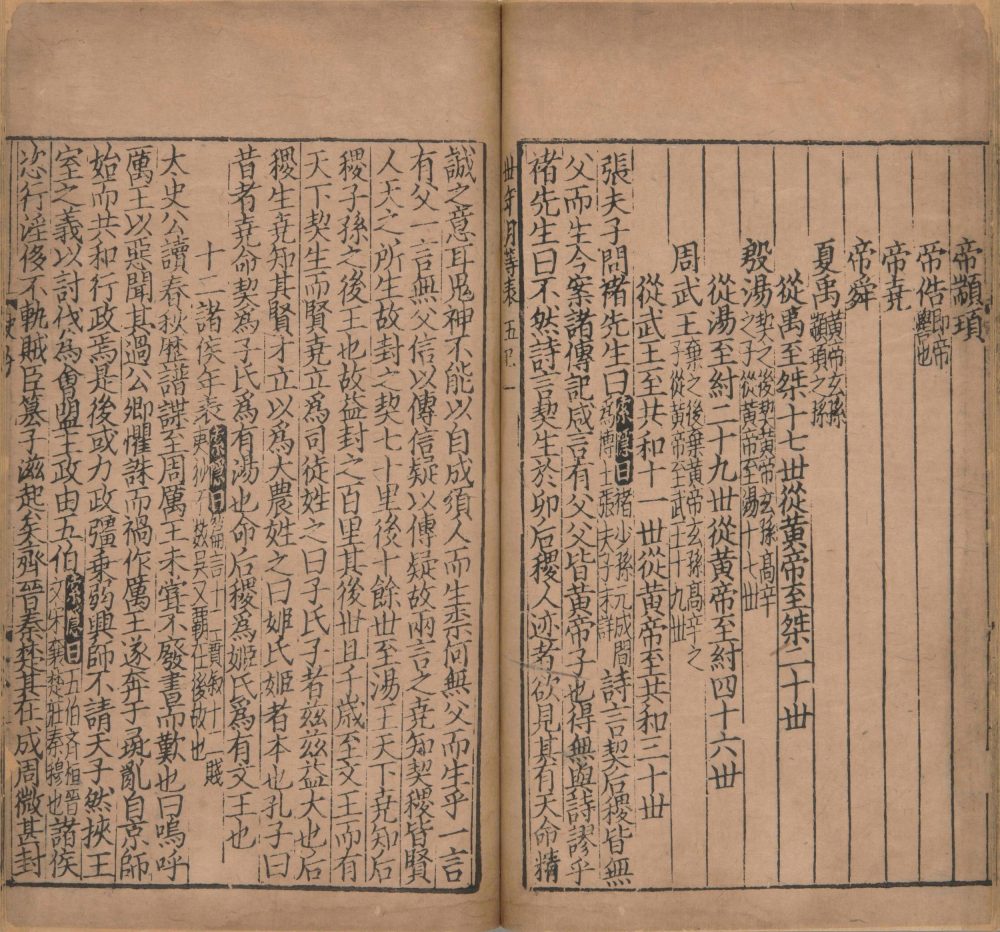 帝顓頊
帝俈即帝嚳也
帝堯
帝舜
夏禹黃帝玄孫顓頊之孫
從禹至桀十七丗從黃帝至桀二十丗
殷湯契之後契黃帝玄孫高辛之子從黃帝至湯十七丗
從湯至紂二十九丗從黃帝至紂四十六丗
周武王棄之後棄黃帝玄孫高辛之子從黃帝至武王十九丗
從武王至共和十一丗從黃帝至共和三十丗
張夫子問褚先生曰索隱曰褚少孫元成間為博士張夫子未詳詩言契后稷皆無
父而生今案諸傳記咸言有父父皆黃帝子也得無與詩謬乎
褚先生曰不然詩言契生於卵后稷人迹者欲見其有天命精
丗年月等表 五 一
誠之意耳鬼神不能以自成須人而生柰何無父而生乎一言
有父一言無父信以傳信疑以傳疑故兩言之堯知契稷皆賢
人天之所生故封之契七十里後十餘世至湯王天下堯知后
稷子孫之後王也故益封之百里其後丗且千歲至文王而有
天下契生而賢堯立為司徒姓之曰子氏子者兹兹益大也后
稷生堯知其賢才立以為大農姓之曰姬氏姬者本也孔子曰
昔者堯命契為子氏為有湯也命后稷為姬氏為有文王也
十二諸侯年表索隱曰篇言十二實敘十三賤夷狄不數吳又霸在後故也
太史公讀春秋歷譜諜至周厲王未嘗不廢書而歎也曰嗚呼
厲王以惡聞其過公卿懼誅而禍作厲王遂奔于彘亂自京師
始而共和行政焉是後或力政彊乘弱興師不請天子然挾王
室之義以討伐為會盟主政由五伯索隱曰五伯齊桓晉文宋襄楚莊秦穆也諸侯
恣行淫侈不軌賊臣篡子滋起矣齊晉秦楚其在成周微甚封